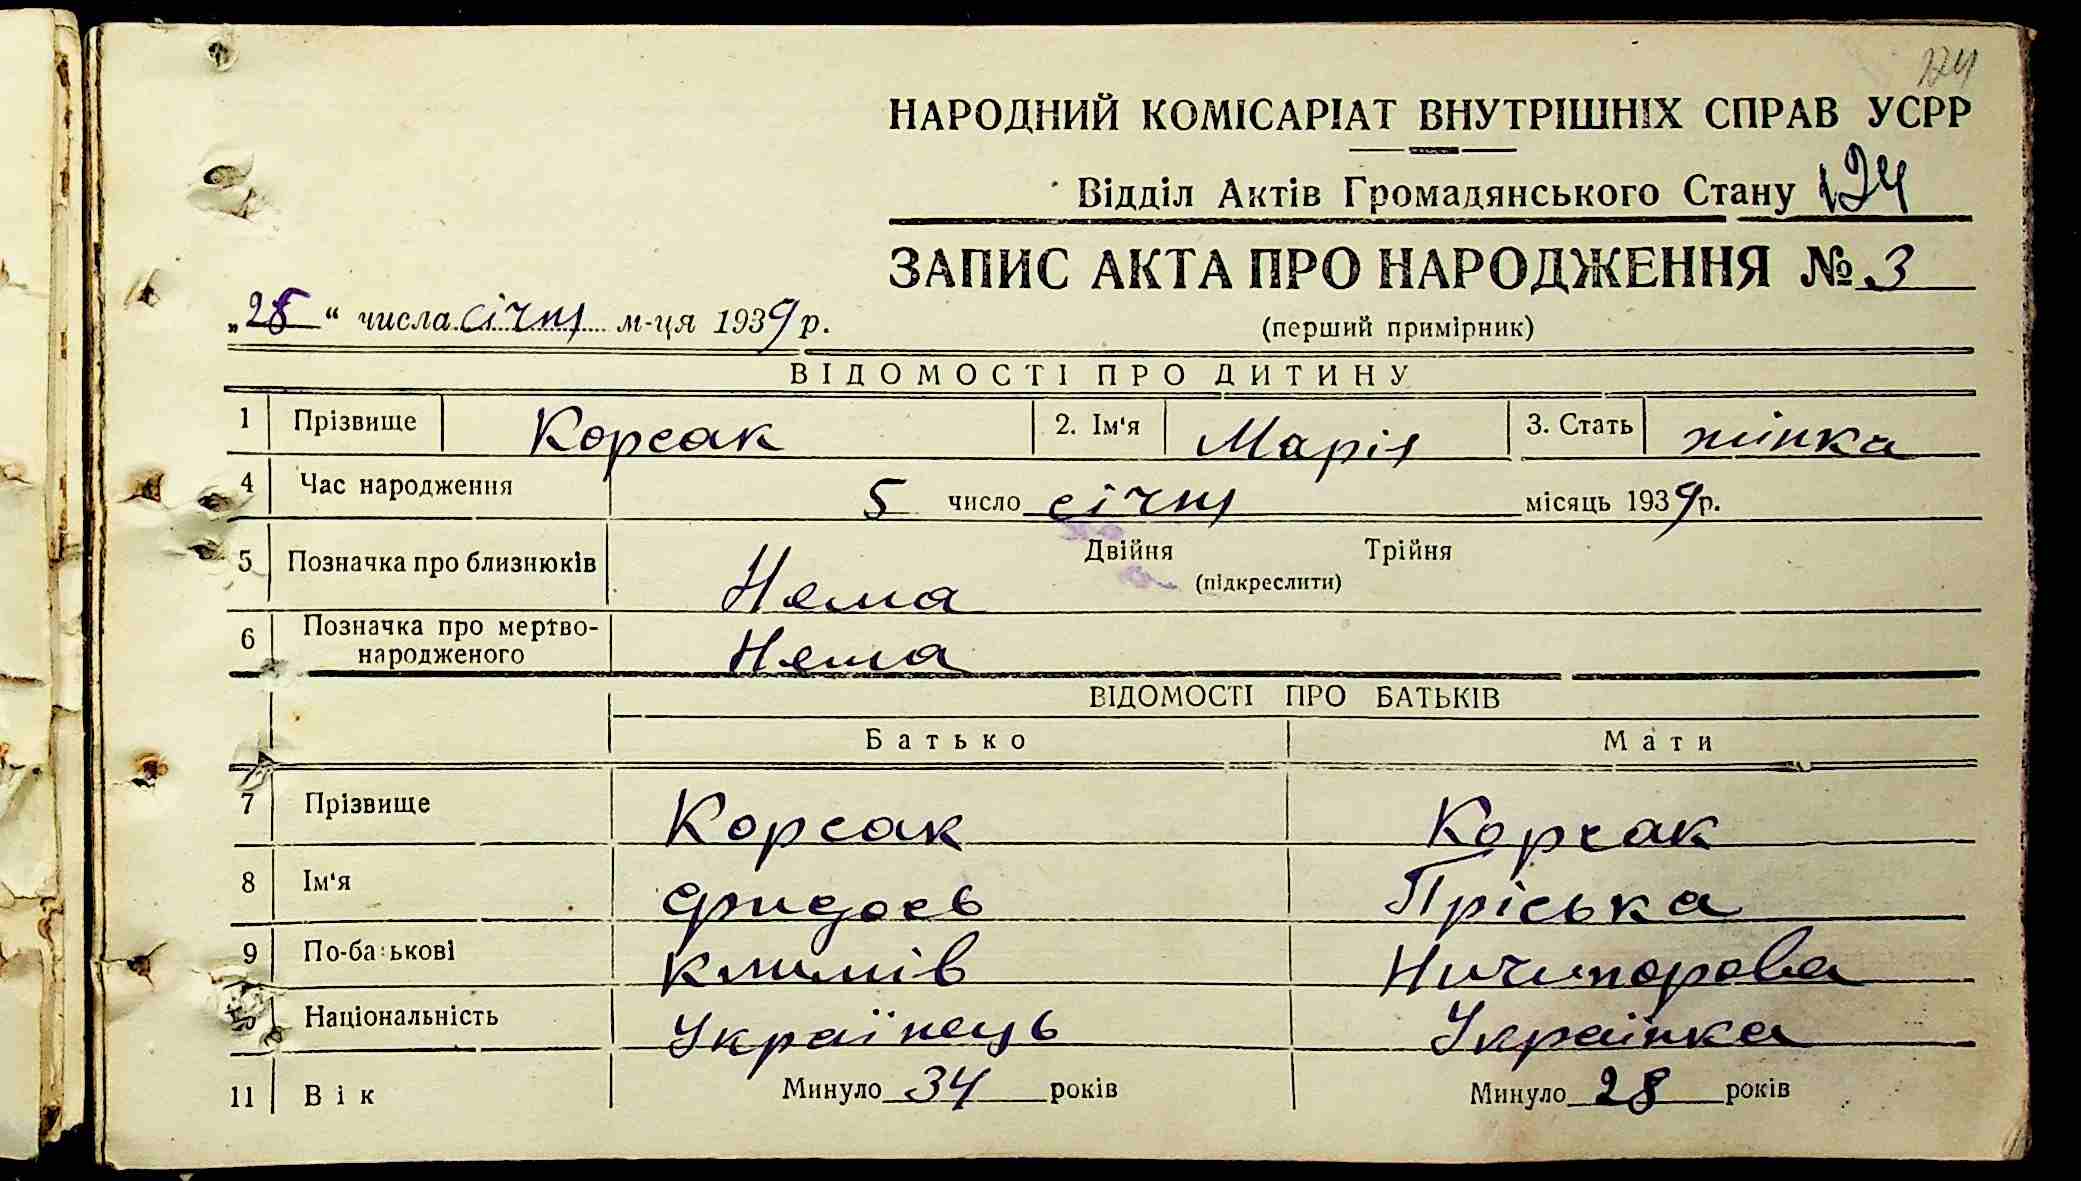 124
НАРОДНИЙ КОМІСАРІАТ ВНУТРІШНІХ СПРАВ УСРР
Відділ Актів Громадянського Стану 124
ЗАПИС АКТА ПРО НАРОДЖЕННЯ № 3
„28“ числа січня м-ця 1939 р.
(перший примірник)
ВІДОМОСТІ ПРО ДИТИНУ
1 Прізвище Корсак 2. Ім'я Марія 3. Стать жінка
4 Час народження 5 число січня місяць 1939 р.
5 Позначка про близнюків Нема Двійня Трійня
(підкреслити)
6 Позначка про мертво-
народженого Нема
ВІДОМОСТІ ПРО БАТЬКІВ
Батько Мати
7 Прізвище Корсак Корсак
8 Ім'я Фидось Пріська
9 По-батькові Климів Ничипорова
Національність Українець Українка
11 Вік Минуло 34 років Минуло 28 років